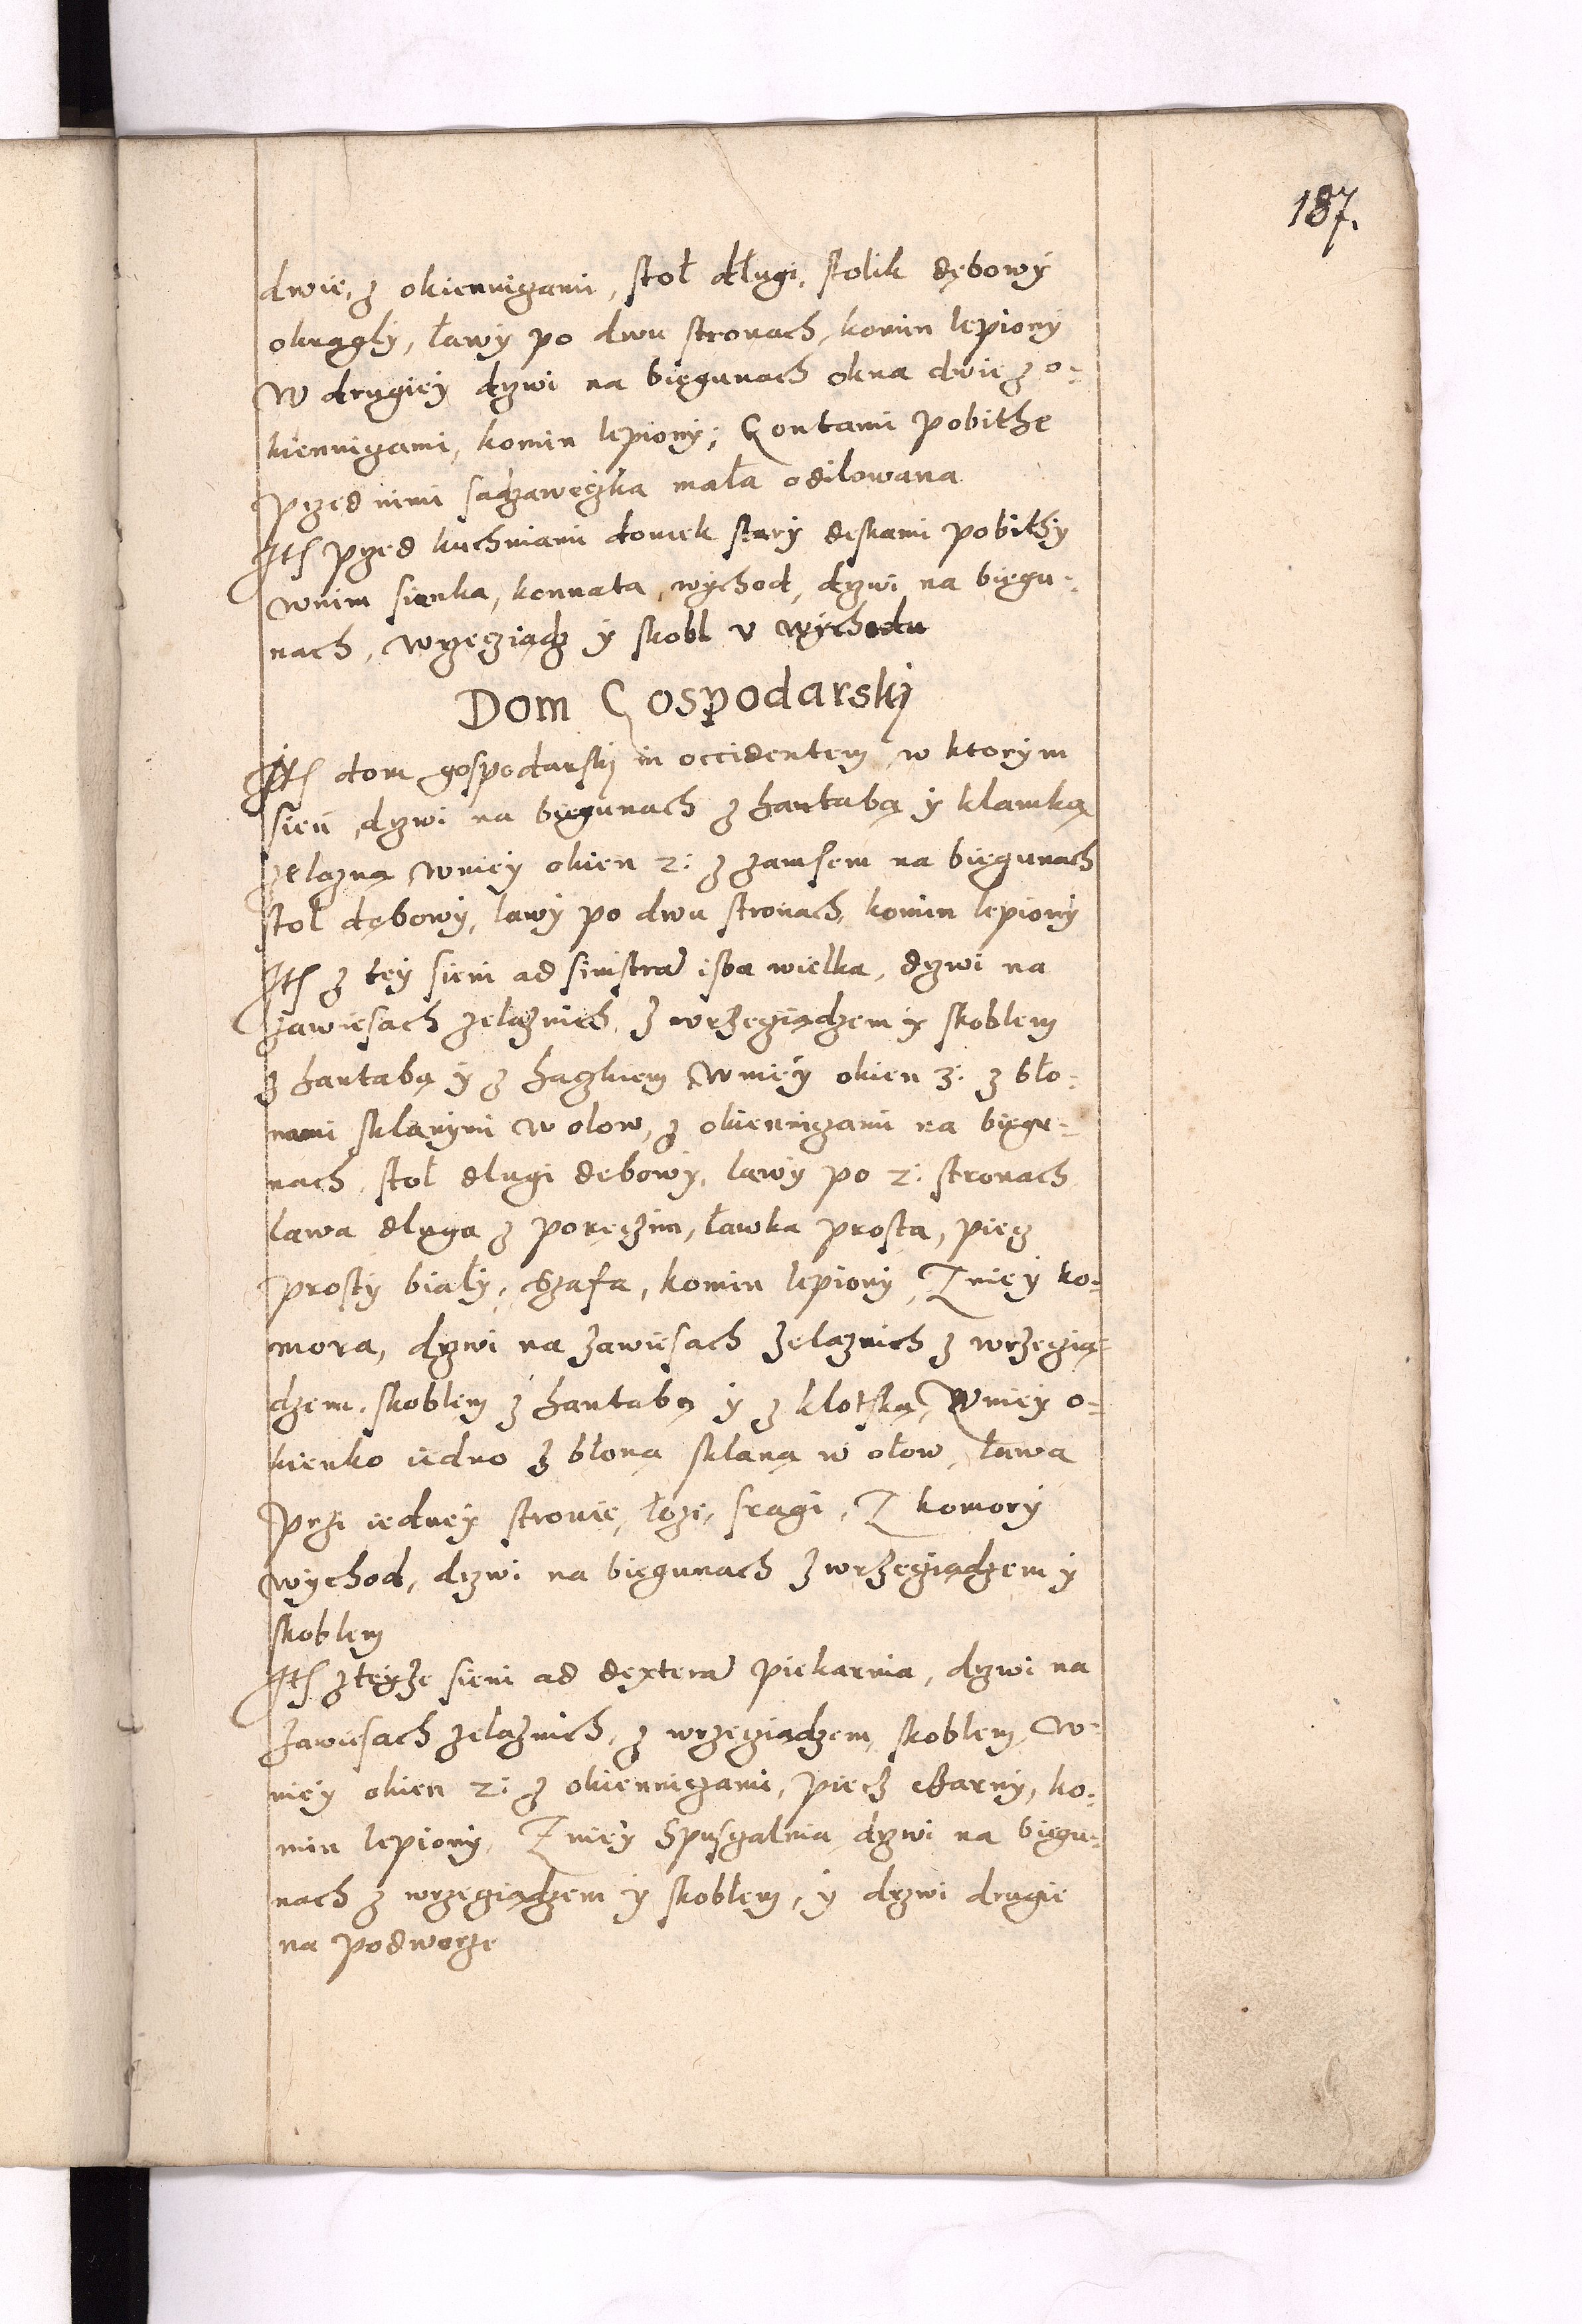 187.
dwie, z okiennicami, stoł długi, stolik dębowy
okrągły, ławy po dwu stronach, komin lepiony
W drugiey dzwi na biegunach okna dwie z o=
kiennicami, komin lepiony; Gontami pobithe
przed nimi sadzaweczka mała odilowana
Its przed kuchniami domek stary deskami pobithy
wnim sienka, komnata, wychod, dzwi na biegu=
nach, wrzeciądz y skobl v wychodu
Dom Gospodarskj
Its dom gospodarskj in occidentem w ktorym
sień, dzwi na biegunach z hantabą y klamką
zelazną wniey okien 2: z zamsem na biegunach
stol dębowy, lawy po dwu stronach, komin lepiony
Its z tey sieni ad sinistra isba wielka, dzwi na
zawiesach zelaznich z wrzeciądzem y skoblem
z hantabą y z haczkiem Wniey okien 3: z bło=
nami sklanymi w olow, z okiennicami na biegu=
nach, stoł dlugi debowy, lawy po 2: stronach
lawa dluga z poręczim, ławka prosta, piec
prosty biały, Szafa, komin lepiony, Z niey ko=
mora, dzwi na zawiesach zelaznich z wrzecią=
dzem, skoblem z hantabą y z klotką, Wniey o=
kienko iedno z błoną sklaną w ołow, ława
przi iedney stronie, łoże, sragi, Z komory
wychod, dzwi na biegunach z wrzeciądzem y
skoblem
Its z teyze sieni ad dextera piekarnia, dzwi na
zawiesach zelaznich, z wrzeciadzem, skoblem, W=
niey okien 2: z okiennicami, piecz czarny, ko=
min lepiony, Z niey Spuszalnia dzwi na biegu=
nach z wrzeciądzem y skoblem, y dzwi drugie
na podworze